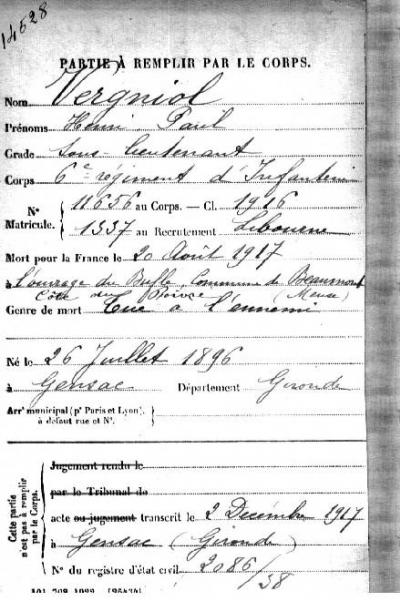 14528
PARTIE À REMPLIR PAR LE CORPS.
Nom Vergniol
Prénoms Henri Paul
Grade sous-lieutenant
Corps 6e régiment d'Infanterie
N° Matricule. 11656 au Corps. — Cl. 1916
1337 au Recrutement Libourne
Mort pour la France le 20 Août 1917
à l'ouvrage du Buffle, Commune de Beaumont
Côte du Poivre (Meuse)
Genre de mort Tué à l'ennemi
Né le 26 Juillet 1896
à Gensac Département Gironde
Arrt municipal (pr Paris et Lyon),
à défaut rue et N°.
Cette partie n'est pas à remplir par le Corps.
Jugement rendu le
par le Tribunal de
acte ou jugement transcrit le 2 Décembre 1917
à Gensac (Gironde)
N° du registre d'état civil 2086/38